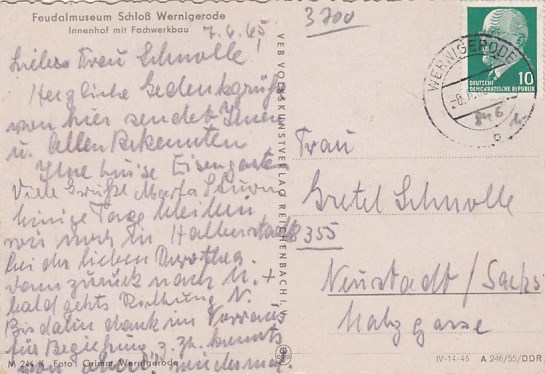 Feudalmuseum Schloß Wernigerode
Innenhof mit Fachwerkbau
7.6.65
3700
Liebe Frau Schnolle!
Herzliche Gedenkgrüße
von hier sendet Ihnen
u. allen Bekannten
Ihre Luise
Viele Grüße Marta
einige Tage bleiben
wir noch in Halberstadt
bei der lieben Dorothea
dann zurück nach
bald gehts Richtung N.
Bis dahin dank im Voraus
für
M 244 K Foto: Grimm, Wernigerode
VEB VOLKSKUNSTVERLAG REICHENBACH I. V.
WERNIGERODE
DEUTSCHE
DEMOKRATISCHE REPUBLIK
10
Frau
Gretel Schnolle
8355
Neustadt/Sachs
Malzgasse
IV-14-45 A 246/55/DDR